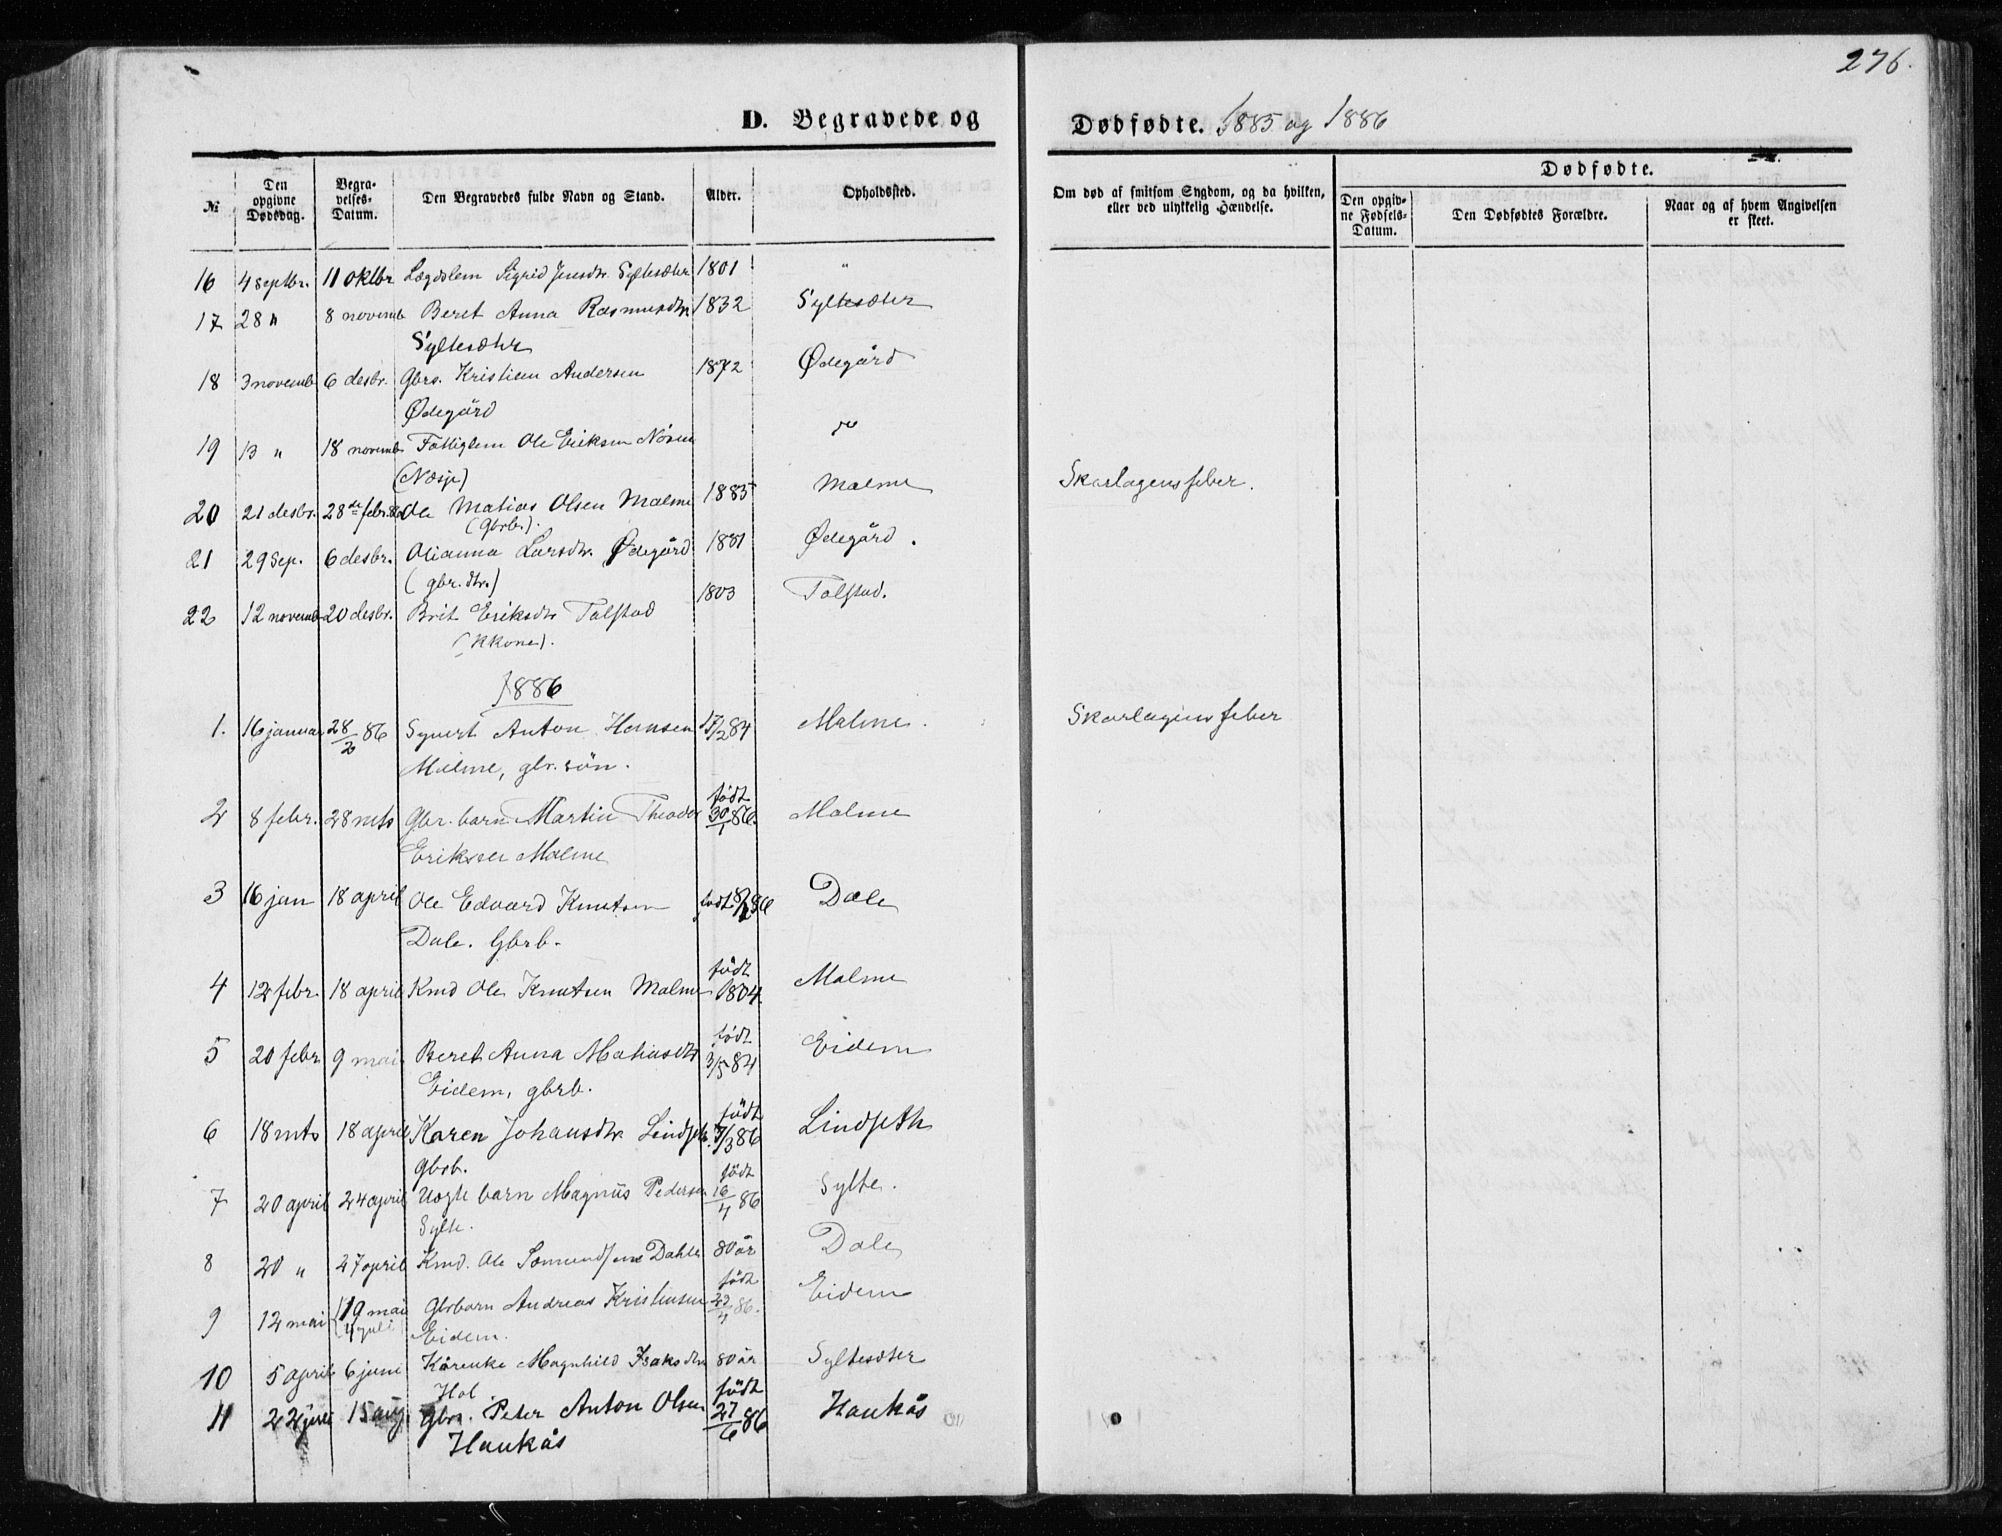 276.
D. Begravede og Dødfødte. 1885 og 1886
№ Den opgivne Dødsdag. Begravelses-Datum. Den Begravedes fulde Navn og Stand. Alder. Opholdssted. Om død af smitsom Sygdom, og da hvilken, eller ved ulykkelig Hændelse. Dødfødte.
Den opgivne Fødsels-Datum. Den Dødfødtes Forældre. Naar og af hvem Angivelsen er skeet.
16 4 septbr. 11 oktbr Lægdslem Sigrid Jensdtr Syltesæter 1801 "
17 28 " 8 novemb Beret Anna Rasmusdtr 1832 Syltesæter
Syltesæter
18 3 novemb 6 desbr. Gbrs. Kristian Andersen 1872 Ødegård
Ødegård
19 13 " 18 novemb Fattiglem Ole Eriksen Nösen do
(Næsje)
20 21 desbr. 28de febr. 86 Ole Matias Olsen Malme 1885 Malme Skarlagensfeber.
(gbrb.).
21 29 Sep. 6 desbr. Olianna Larsdtr. Ødegård 1881 Ødegård.
(gbr.dtr.)
22 12 novemb 20 desbr. Brit Eriksdtr Talstad 1803 Talstad.
(Kkone).
1886
1. 16 januar 28/2 86 Syvert Anton Hansen 17/2 84 Malme. Skarlagensfeber
Malme, gbr. sön.
2 8 febr. 28 mts Gbr. barn Martin Theodor födt 30/1 86. Malme
Eriksen Malme
3 16 jan 18 april Ole Edvard Knutsen födt 8/1 86 Dale
Dale. Gbrb.
4 12 febr. 18 april Kmd Ole Knutsen Malme födt 1804. Malme
5 20 febr 9 mai Beret Anna Matiasdtr födt 3/5 84 Eidem
Eidem, gbrb.
6 18 mts 18 april Karen Johansdtr Lindset födt 7/3 86 Lindseth
gbrb.
7 20 april 24 april Uegte barn Magnus Pedersen födt 16/4 86 Sylte.
Sylte.
8 20 " 27 april Kmd. Ole Sæmundsen Dahle 80 år Dale
9 12 mai (19 mai Gbrbarn Andreas Kristensen födt 22/4 86. Eidem
(4 juli Eidem.
10 5 april 6 juni Kårenke Magnhild Isaksdtr 80 år Syltesæter
Hol
11 22 juli 15 aug. Gbrs. Peter Anton Olsen födt 27/6 86 Haukås
Haukås